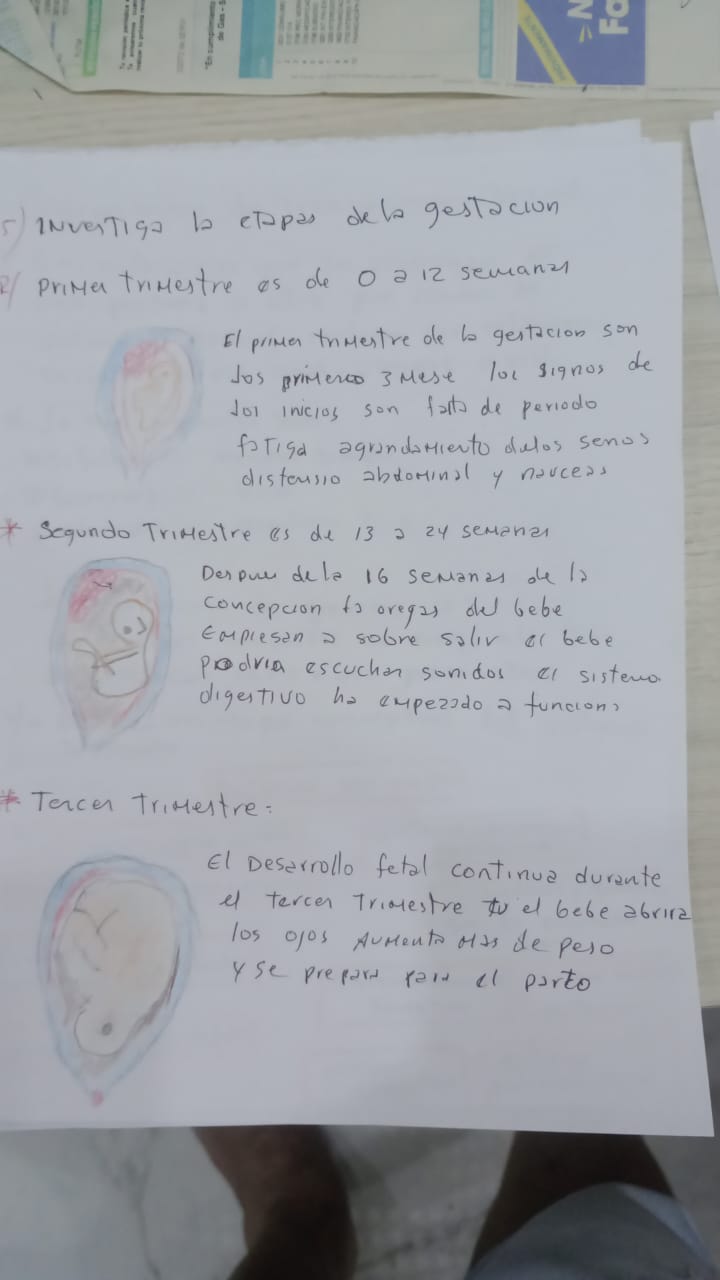 "En cumplimiento
de Gas - S
N
Fa
5) INVESTIGA la etapas de la gestacion
R/ Primer trimestre es de 0 a 12 semanas
El primer trimestre de la gestacion son
los primeros 3 mese los signos de
los inicios son falta de periodo
fatiga agrandamiento delos senos
distensio abdominal y nauceas
* Segundo Trimestre es de 13 a 24 semanas
Despues dela 16 semanas de la
concepcion la oregas del bebe
Empiesan a sobre salir el bebe
podria escuchar sonidos el sistema
digestivo ha empezado a funciona
* Tercer Trimestre:
El Desarrollo fetal continua durante
el tercer Trimestre el bebe abrira
los ojos Aumenta Mas de peso
y se prepara para el parto